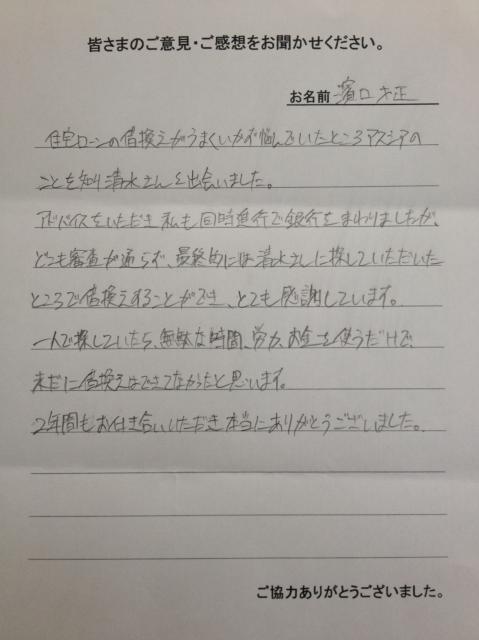 皆さまのご意見・ご感想をお聞かせください。
お名前 濱口 正
住宅ローンの借換えがうまくいかず悩んでいたところアスシアの
ことを知り清水さんと出会いました。
アドバイスをいただき私も同時進行で銀行をまわりましたが、
どこも審査が通らず、最終的には清水さんに探していただいた
ところで借換えすることができ、とても感謝しています。
一人で探していたら、無駄な時間、労力、お金を使うだけで、
未だに借換えはできてなかったと思います。
2年間もお付き合いいただき本当にありがとうございました。
ご協力ありがとうございました。